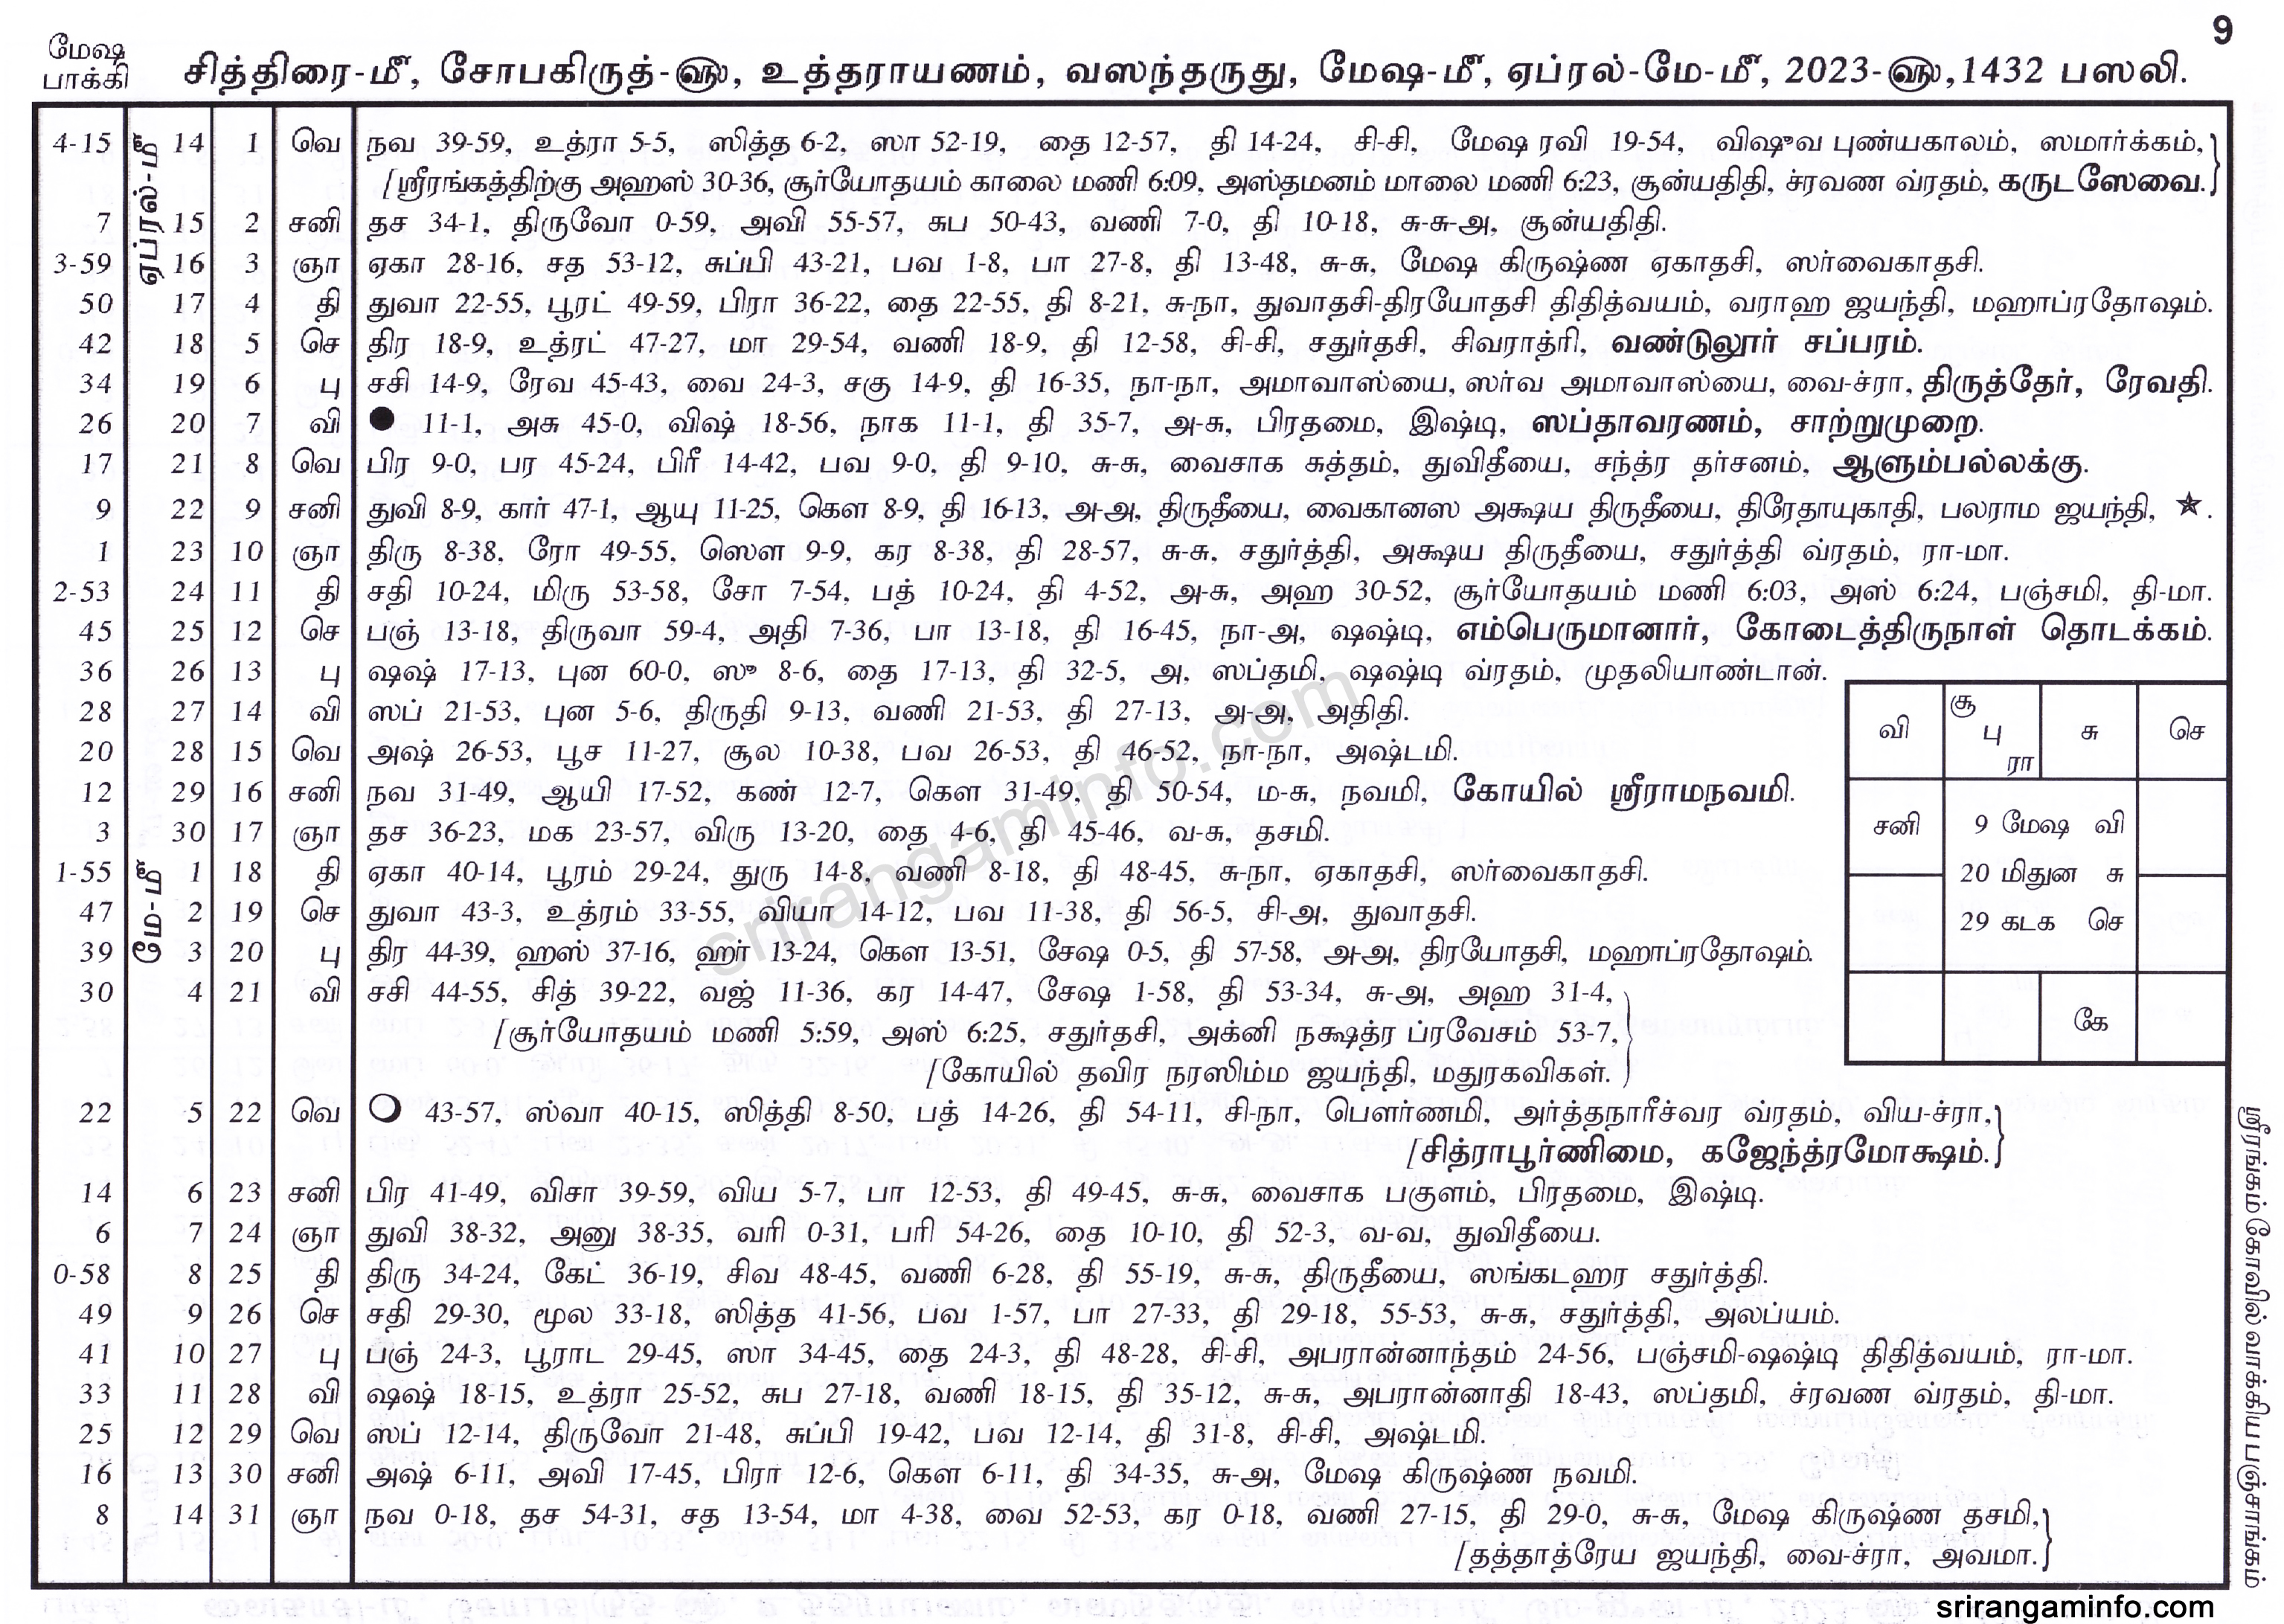 9
மேஷ
பாக்கி
சித்திரை-மீ, சோபகிருத்-௵, உத்தராயணம், வஸந்தருது, மேஷ-மீ, ஏப்ரல்-மே-மீ, 2023-௵,1432 பஸலி.
ஏப்ரல்-மீ
4-15 14 1 வெ நவ 39-59, உத்ரா 5-5, ஸித்த 6-2, ஸா 52-19, தை 12-57, தி 14-24, சி-சி, மேஷ ரவி 19-54, விஷுவ புண்யகாலம், ஸமார்க்கம்,}
[ஸ்ரீரங்கத்திற்கு அஹஸ் 30-36, சூர்யோதயம் காலை மணி 6:09, அஸ்தமனம் மாலை மணி 6:23, சூன்யதிதி, ச்ரவண வ்ரதம், கருடஸேவை.
7 15 2 சனி தச 34-1, திருவோ 0-59, அவி 55-57, சுப 50-43, வணி 7-0, தி 10-18, சு-சு-அ, சூன்யதிதி.
3-59 16 3 ஞா ஏகா 28-16, சத 53-12, சுப்பி 43-21, பவ 1-8, பா 27-8, தி 13-48, சு-சு, மேஷ கிருஷ்ண ஏகாதசி, ஸர்வைகாதசி.
50 17 4 தி துவா 22-55, பூரட் 49-59, பிரா 36-22, தை 22-55, தி 8-21, சு-நா, துவாதசி-திரயோதசி திதித்வயம், வராஹ ஜயந்தி, மஹாப்ரதோஷம்.
42 18 5 செ திர 18-9, உத்ரட் 47-27, மா 29-54, வணி 18-9, தி 12-58, சி-சி, சதுர்தசி, சிவராத்ரி, வண்டுலூர் சப்பரம்.
34 19 6 பு சசி 14-9, ரேவ 45-43, வை 24-3, சகு 14-9, தி 16-35, நா-நா, அமாவாஸ்யை, ஸர்வ அமாவாஸ்யை, வை-ச்ரா, திருத்தேர், ரேவதி.
26 20 7 வி ● 11-1, அசு 45-0, விஷ் 18-56, நாக 11-1, தி 35-7, அ-சு, பிரதமை, இஷ்டி, ஸப்தாவரணம், சாற்றுமுறை.
17 21 8 வெ பிர 9-0, பர 45-24, பிரீ 14-42, பவ 9-0, தி 9-10, சு-சு, வைசாக சுத்தம், துவிதீயை, சந்த்ர தர்சனம், ஆளும்பல்லக்கு.
9 22 9 சனி துவி 8-9, கார் 47-1, ஆயு 11-25, கௌ 8-9, தி 16-13, அ-அ, திருதீயை, வைகானஸ அக்ஷய திருதீயை, திரேதாயுகாதி, பலராம ஜயந்தி, ★.
1 23 10 ஞா திரு 8-38, ரோ 49-55, ஸௌ 9-9, கர 8-38, தி 28-57, சு-சு, சதுர்த்தி, அக்ஷய திருதீயை, சதுர்த்தி வ்ரதம், ரா-மா.
2-53 24 11 தி சதி 10-24, மிரு 53-58, சோ 7-54, பத் 10-24, தி 4-52, அ-சு, அஹ 30-52, சூர்யோதயம் மணி 6:03, அஸ் 6:24, பஞ்சமி, தி-மா.
45 25 12 செ பஞ் 13-18, திருவா 59-4, அதி 7-36, பா 13-18, தி 16-45, நா-அ, ஷஷ்டி, எம்பெருமானார், கோடைத்திருநாள் தொடக்கம்.
36 26 13 பு ஷஷ் 17-13, புன 60-0, ஸு 8-6, தை 17-13, தி 32-5, அ, ஸப்தமி, ஷஷ்டி வ்ரதம், முதலியாண்டான்.
28 27 14 வி ஸப் 21-53, புன 5-6, திருதி 9-13, வணி 21-53, தி 27-13, அ-அ, அதிதி.
20 28 15 வெ அஷ் 26-53, பூச 11-27, சூல 10-38, பவ 26-53, தி 46-52, நா-நா, அஷ்டமி.
12 29 16 சனி நவ 31-49, ஆயி 17-52, கண் 12-7, கௌ 31-49, தி 50-54, ம-சு, நவமி, கோயில் ஸ்ரீராமநவமி.
3 30 17 ஞா தச 36-23, மக 23-57, விரு 13-20, தை 4-6, தி 45-46, வ-சு, தசமி.
மே-மீ
1-55 1 18 தி ஏகா 40-14, பூரம் 29-24, துரு 14-8, வணி 8-18, தி 48-45, சு-நா, ஏகாதசி, ஸர்வைகாதசி.
47 2 19 செ துவா 43-3, உத்ரம் 33-55, வியா 14-12, பவ 11-38, தி 56-5, சி-அ, துவாதசி.
39 3 20 பு திர 44-39, ஹஸ் 37-16, ஹர் 13-24, கௌ 13-51, சேஷ 0-5, தி 57-58, அ-அ, திரயோதசி, மஹாப்ரதோஷம்.
30 4 21 வி சசி 44-55, சித் 39-22, வஜ் 11-36, கர 14-47, சேஷ 1-58, தி 53-34, சு-அ, அஹ 31-4,}
[சூர்யோதயம் மணி 5:59, அஸ் 6:25, சதுர்தசி, அக்னி நக்ஷத்ர ப்ரவேசம் 53-7,
[கோயில் தவிர நரஸிம்ம ஜயந்தி, மதுரகவிகள்.
22 5 22 வெ ○ 43-57, ஸ்வா 40-15, ஸித்தி 8-50, பத் 14-26, தி 54-11, சி-நா, பௌர்ணமி, அர்த்தநாரீச்வர வ்ரதம், விய-ச்ரா,}
[சித்ராபூர்ணிமை, கஜேந்த்ரமோக்ஷம்.
14 6 23 சனி பிர 41-49, விசா 39-59, விய 5-7, பா 12-53, தி 49-45, சு-சு, வைசாக பகுளம், பிரதமை, இஷ்டி.
6 7 24 ஞா துவி 38-32, அனு 38-35, வரி 0-31, பரி 54-26, தை 10-10, தி 52-3, வ-வ, துவிதீயை.
0-58 8 25 தி திரு 34-24, கேட் 36-19, சிவ 48-45, வணி 6-28, தி 55-19, சு-சு, திருதீயை, ஸங்கடஹர சதுர்த்தி.
49 9 26 செ சதி 29-30, மூல 33-18, ஸித்த 41-56, பவ 1-57, பா 27-33, தி 29-18, 55-53, சு-சு, சதுர்த்தி, அலப்யம்.
41 10 27 பு பஞ் 24-3, பூராட 29-45, ஸா 34-45, தை 24-3, தி 48-28, சி-சி, அபரான்னாந்தம் 24-56, பஞ்சமி-ஷஷ்டி திதித்வயம், ரா-மா.
33 11 28 வி ஷஷ் 18-15, உத்ரா 25-52, சுப 27-18, வணி 18-15, தி 35-12, சு-சு, அபரான்னாதி 18-43, ஸப்தமி, ச்ரவண வ்ரதம், தி-மா.
25 12 29 வெ ஸப் 12-14, திருவோ 21-48, சுப்பி 19-42, பவ 12-14, தி 31-8, சி-சி, அஷ்டமி.
16 13 30 சனி அஷ் 6-11, அவி 17-45, பிரா 12-6, கௌ 6-11, தி 34-35, சு-அ, மேஷ கிருஷ்ண நவமி.
8 14 31 ஞா நவ 0-18, தச 54-31, சத 13-54, மா 4-38, வை 52-53, கர 0-18, வணி 27-15, தி 29-0, சு-சு, மேஷ கிருஷ்ண தசமி,}
[தத்தாத்ரேய ஜயந்தி, வை-ச்ரா, அவமா.
வி
சூ
பு
ரா
சு
செ
சனி
9 மேஷ வி
20 மிதுன சு
29 கடக செ
கே
ஸ்ரீரங்கம் கோவில் வாக்கிய பஞ்சாங்கம்
srirangaminfo.com
srirangaminfo.com